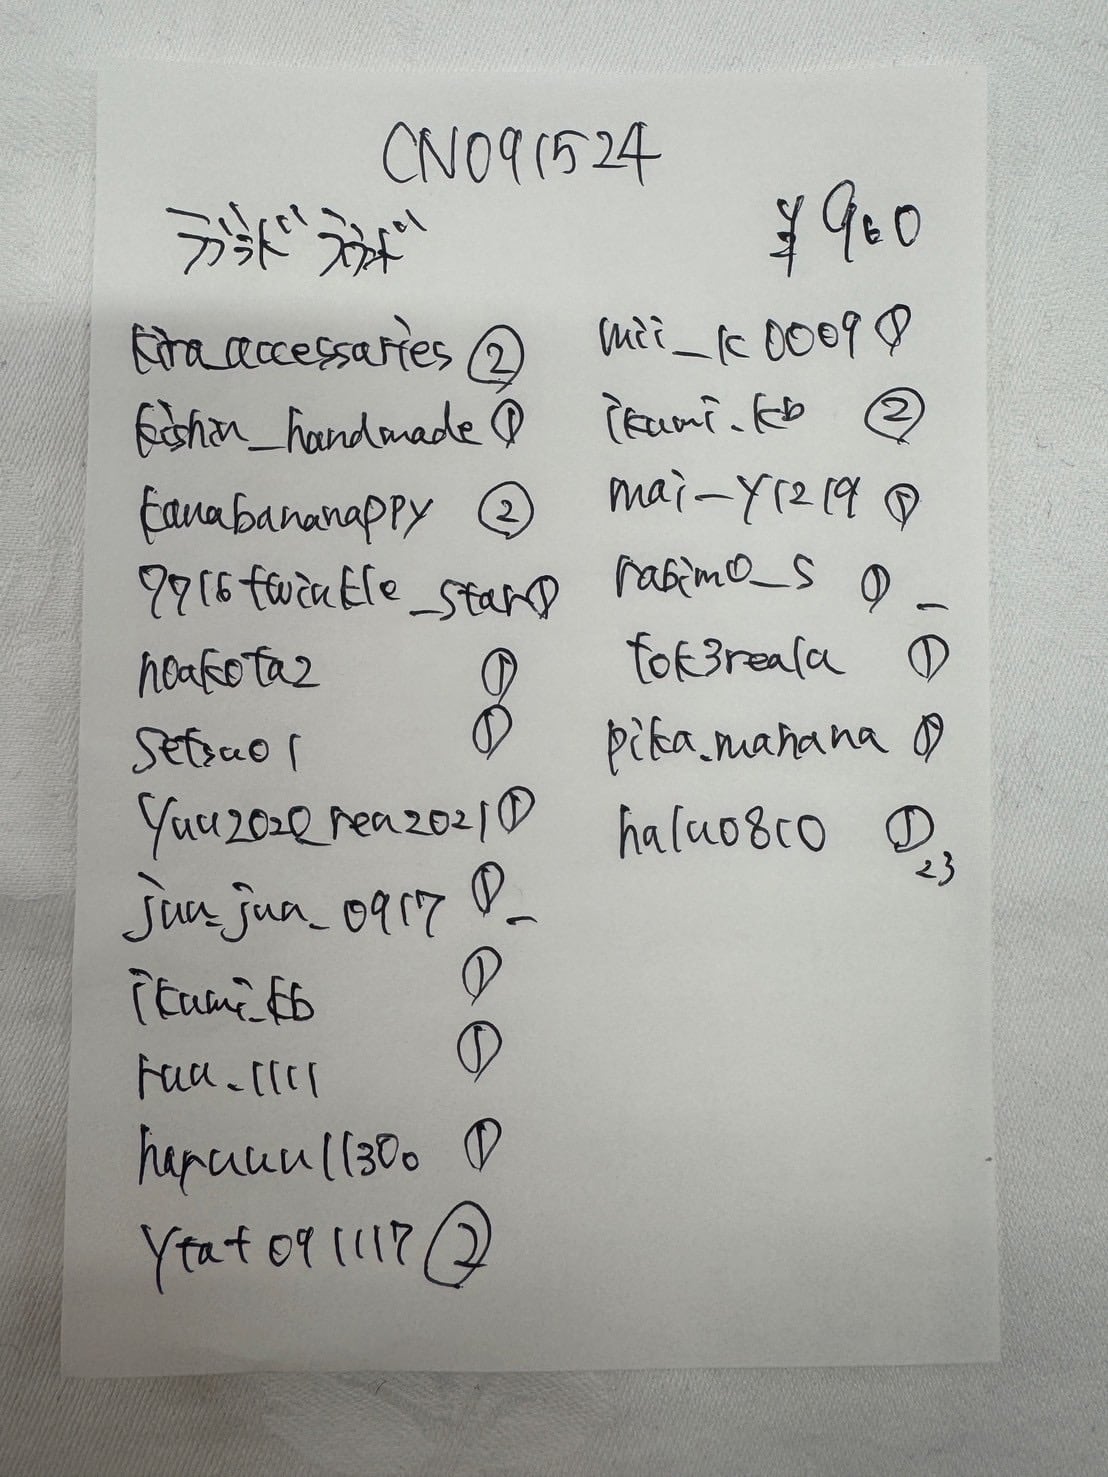 CN091524
¥960
kira_accessaries ②
kishin_handmade ①
kanabananappy ②
9916twinkle_star ①
noakota2 ①
setsuo1 ①
yuu2020_ren2021 ①
jun_jun_0917 ① _
ikumi_kb ①
ruu_1111 ①
haruuuu1130 ①
ytat091117 ②
mii_k0009 ①
ikumi_kb ②
mai_y1219 ①
rasimo_s ① _
tok3reala ①
pika.manana ①
halu0810 ①
23